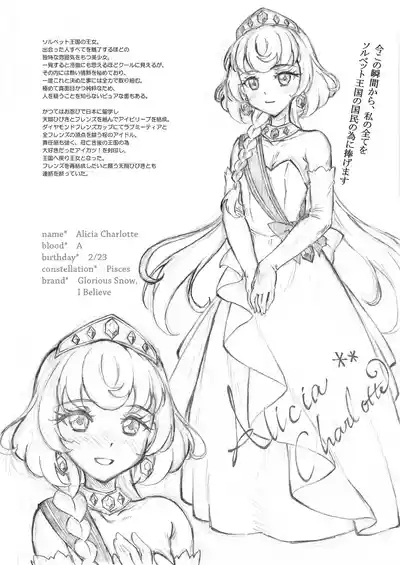 ソルベット王国の王女。
出会った人すべてを魅了するほどの
独特な雰囲気をもつ美少女。
一見すると冷血にも思えるほどクールに見えるが、
その内には熱い情熱を秘めており、
一度これと決めた事には全力で取り組む。
極めて真面目かつ純粋なため、
人を疑うことを知らないピュアな面もある。
かつてはお忍びで日本に留学し
天翔ひびきとフレンズを組んでアイビリーブを結成。
ダイヤモンドフレンズカップにてラブミーティアと
全フレンズの頂点を競う程のアイドル。
責任感も強く、母亡き後の王国の為
大好きだったアイカツ！を封印し、
王国へ戻り王女となった。
フレンズを再結成したいと願う天翔ひびきとも
連絡を断っていた。
今この瞬間から、私の全てを
ソルベット王国の国民の為に捧げます
name* Alicia Charlotte
blood* A
birthday* 2/23
constellation* Pisces
brand* Glorious Snow,
I Believe
Alicia **
Charlotte